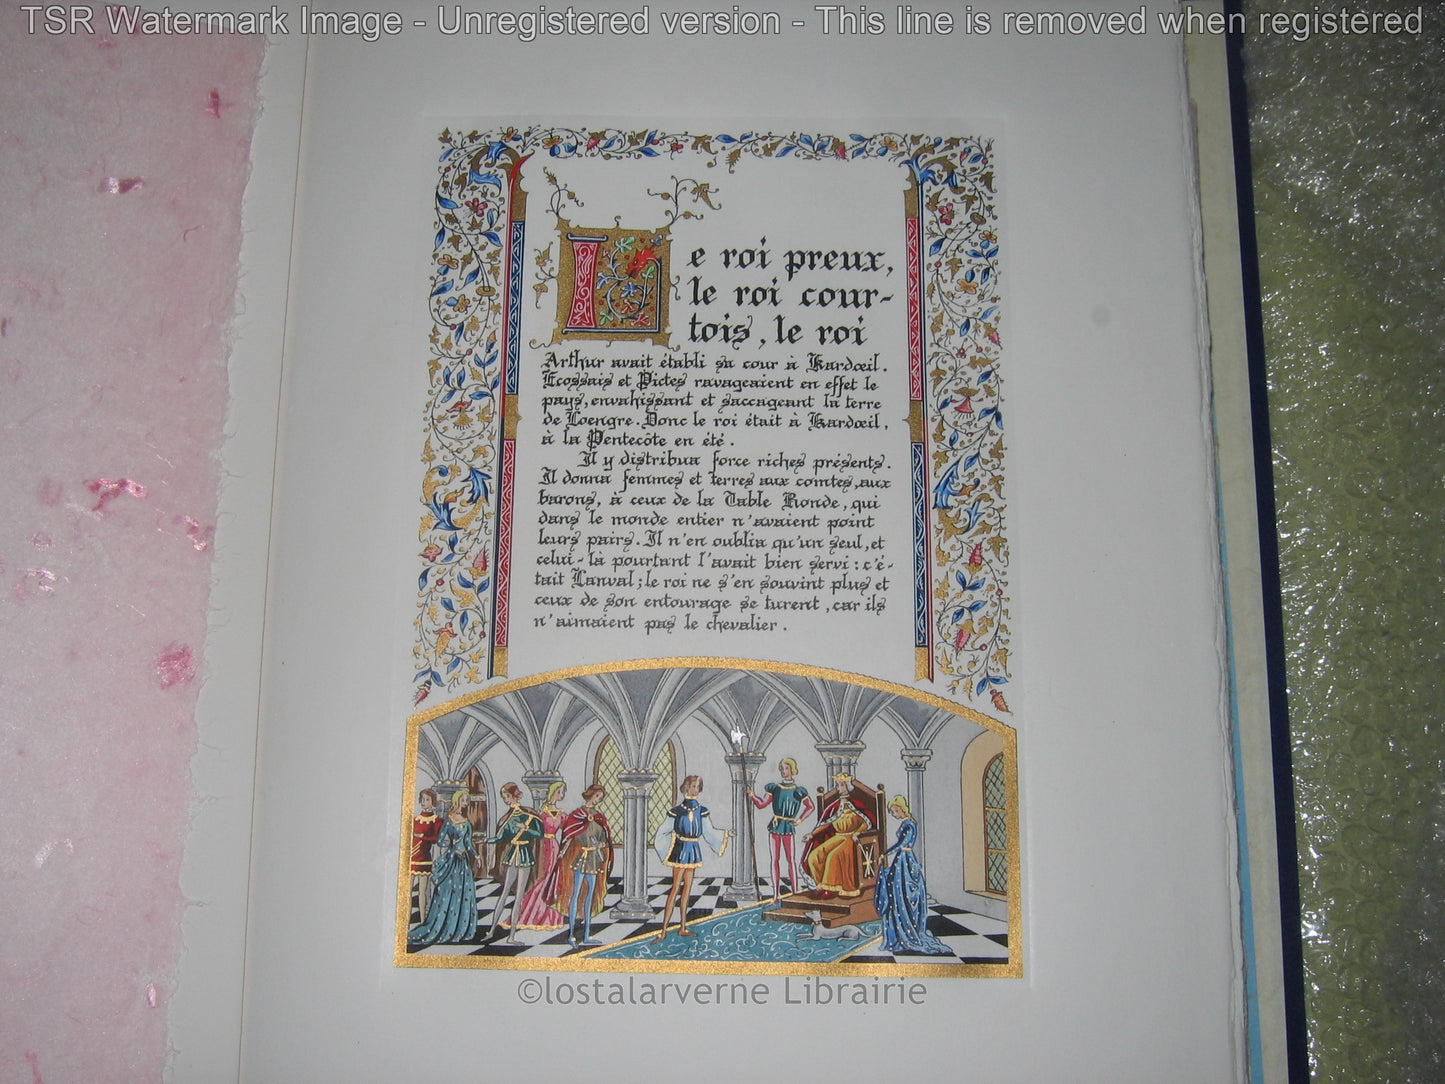 TSR Watermark Image - Unregistered version - This line is removed when registered
Le roi preux,
le roi cour-
tois, le roi
Arthur avait établi sa cour à Kardœil.
Ecossais et Pictes ravageaient en effet le
pays, envahissant et saccageant la terre
de Loengre. Donc le roi était à Kardœil,
à la Pentecôte en été.
Il y distribua force riches présents.
Il donna femmes et terres aux comtes, aux
barons, à ceux de la Table Ronde, qui
dans le monde entier n'avaient point
leurs pairs. Il n'en oublia qu'un seul, et
celui-là pourtant l'avait bien servi : c'é-
tait Lanval ; le roi ne s'en souvint plus et
ceux de son entourage se turent, car ils
n'aimaient pas le chevalier.
©lostalarverne Librairie